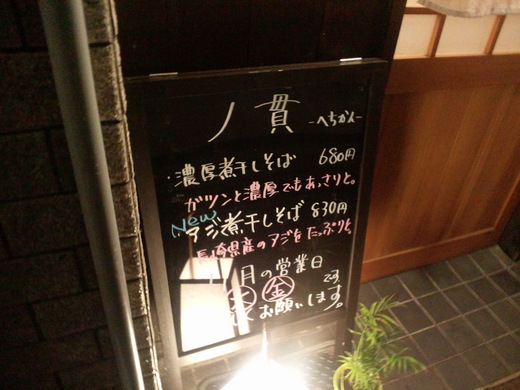 ノ貫 -へちかん-
・濃厚煮干しそば 680円
ガツンと濃厚でもあっさりと。
New
アジ煮干しそば 830円
長崎県産のアジをたっぷりと。
月の営業日
金 です
お願いします。